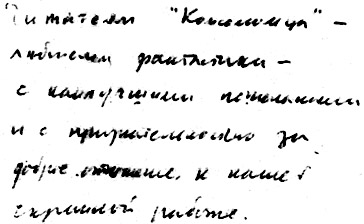 Читателям "Комсомольца" –
любителям фантастики –
с наилучшими пожеланиями
и с признательностью за
доброе отношение к нашей
скромной работе.